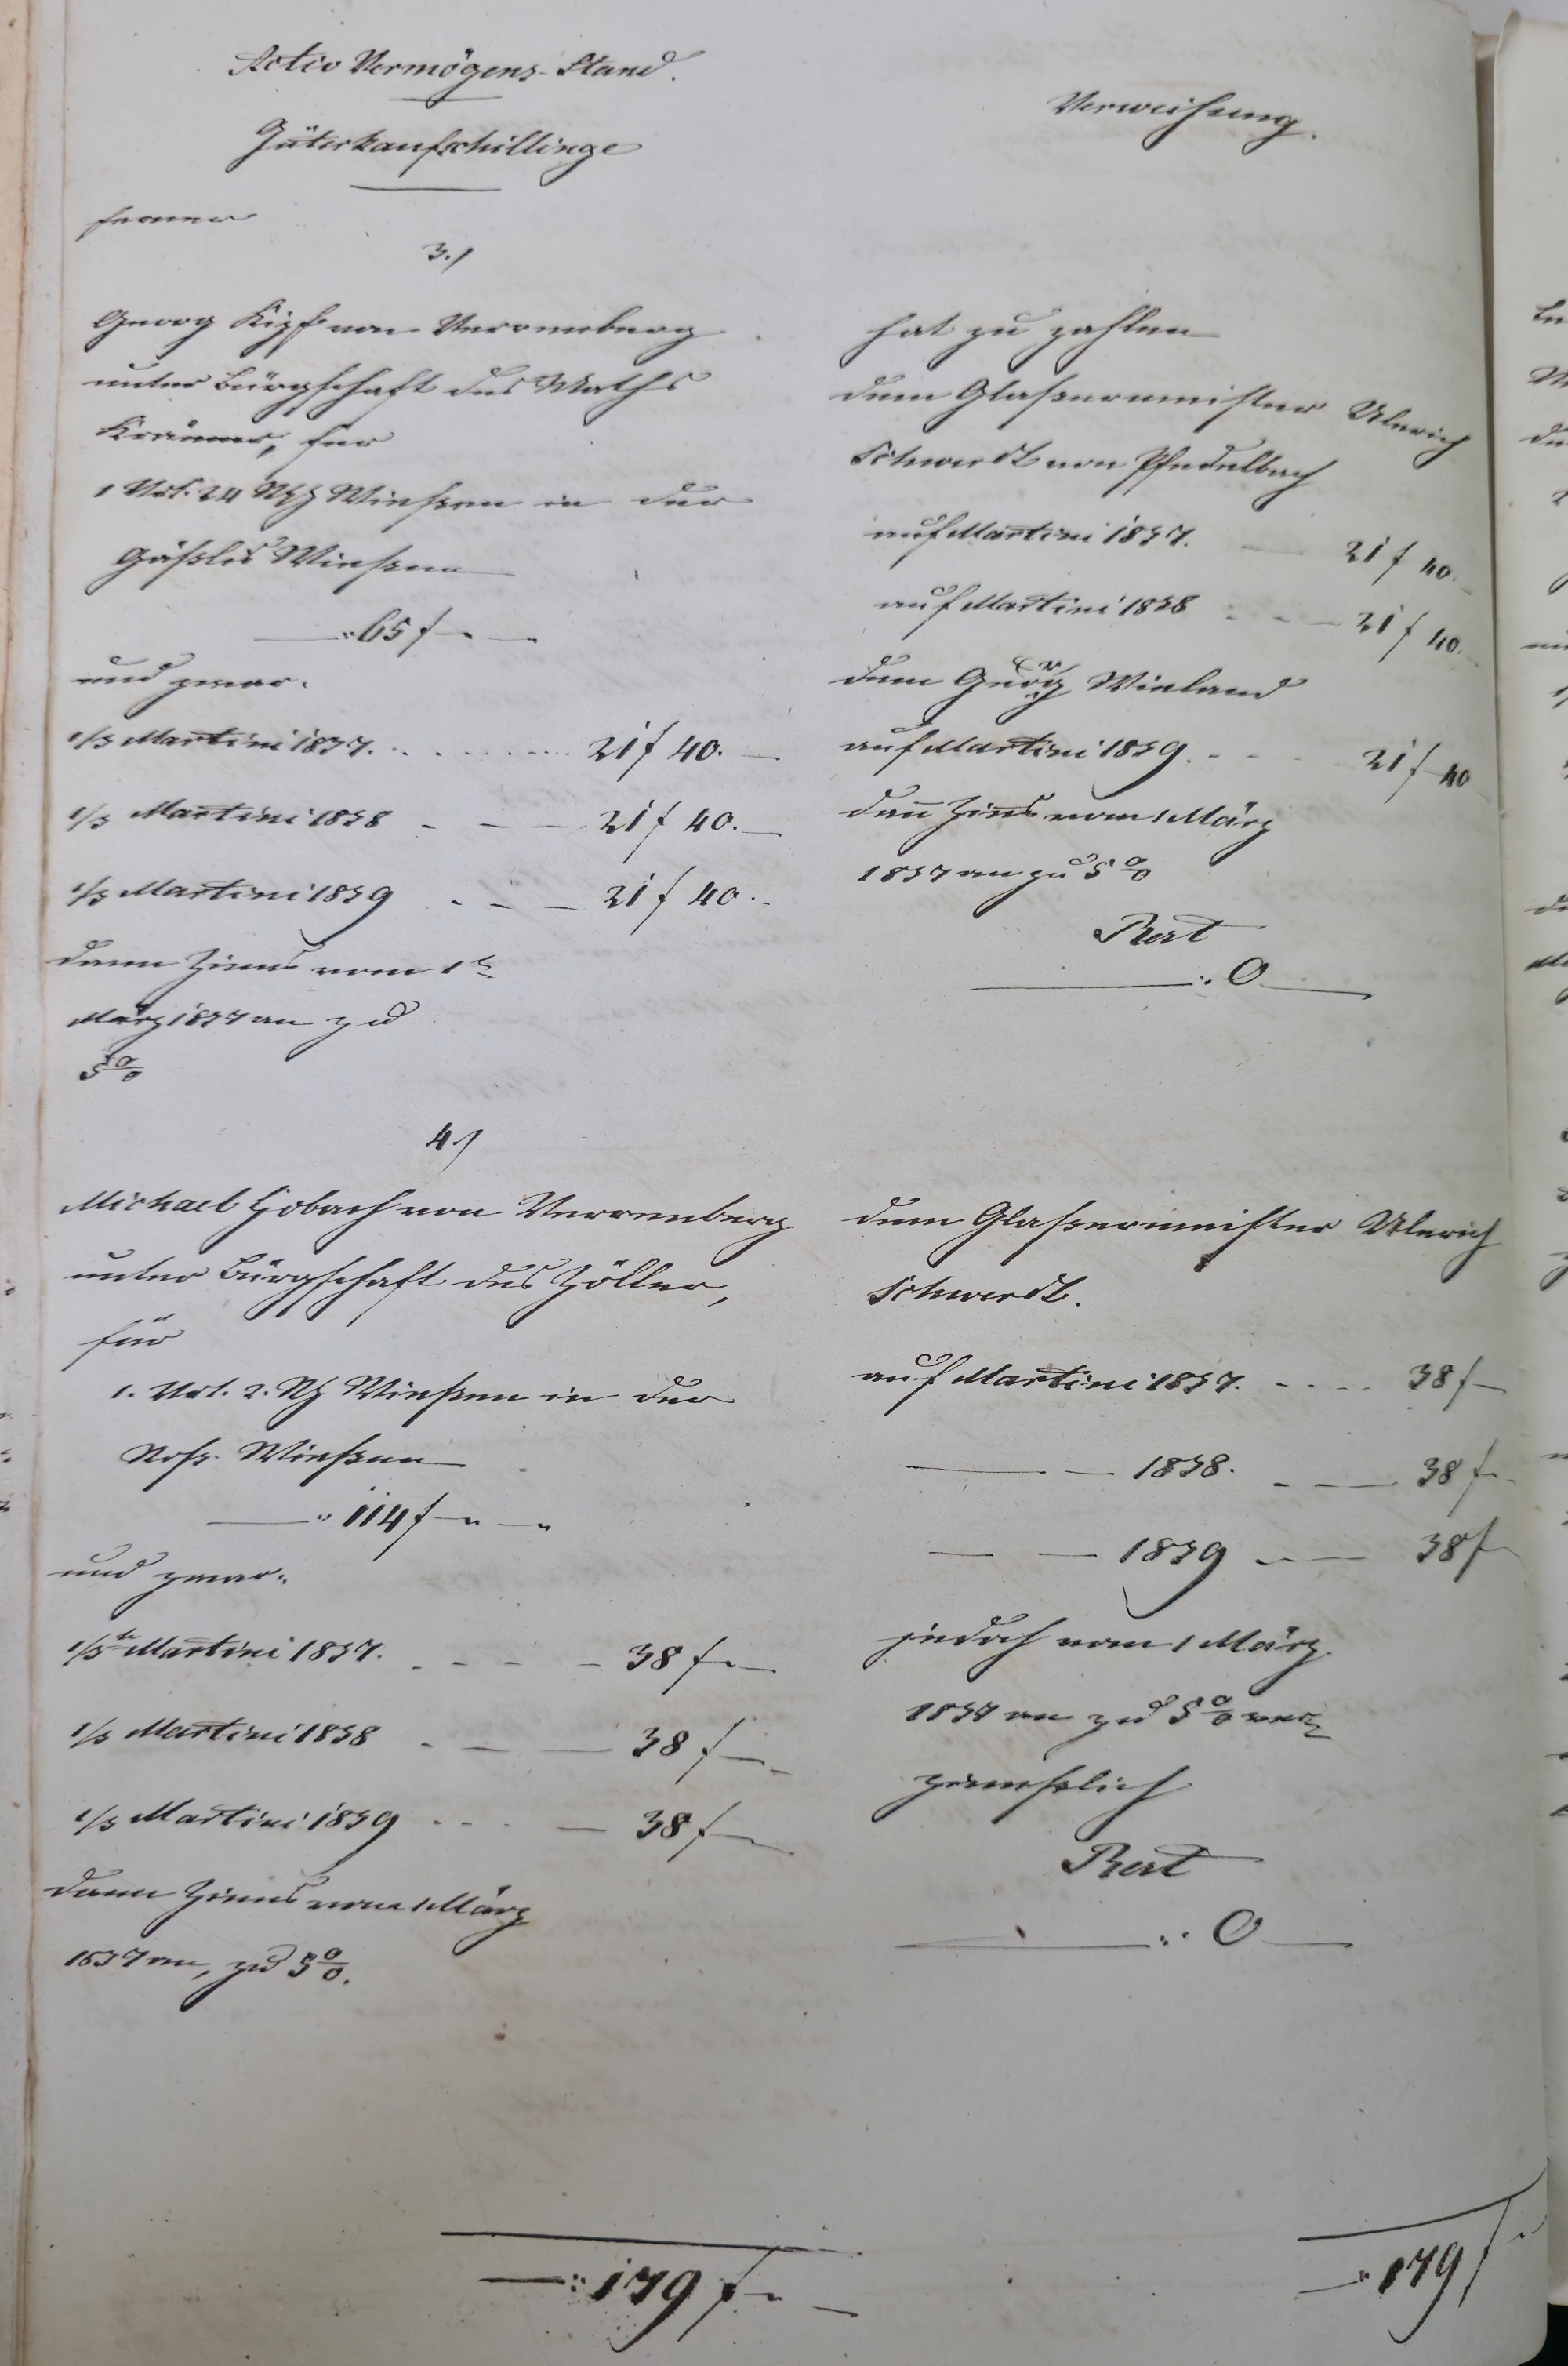 Activ Vermögens-Stand.
Güterkaufschillinge
ferner
3./
Georg Kipf von Verrenberg
unter Bürgschaft des Maths
Krämer, für
1 Vrt. 24 Rth Wiesen in der
Wiesen
65 f
und zwar.
1/3 Martini 1837. 21 f 40.
1/3 Martini 1838 21 f 40.
1/3 Martini 1839 21 f 40.
dann Zinns vom 1ten
März 1837 an zu
5 %
4./
Michael Hobach von Verrenberg
unter Bürgschaft des Zöller,
für
1. Vrt. 2. Rth Wiesen in der
Wiesen
114 f
und zwar.
1/3tl Martini 1837. 38 f
1/3 Martini 1838 38 f
1/3 Martini 1839 38 f
dann Zinns vom 1 März
1837 an, zu 5 %.
179 f
Verweisung.
hat zu zahlen
dem Glasermeister Ulerich
Schwerdt von Pfedelbach
auf Martini 1837. 21 f 40.
auf Martini 1838 21 f 40.
dem Georg Wieland
auf Martini 1839. 21 f 40
den Zins vom 1 März
1837 an zu 5 %
Rest
0
dem Glasermeister Ulerich
Schwerdt.
auf Martini 1837. 38 f
1838. 38 f
1839 38 f
jedoch vom 1 März
1837 an zu 5 % ver
zinnslich
Rest
0
179 f